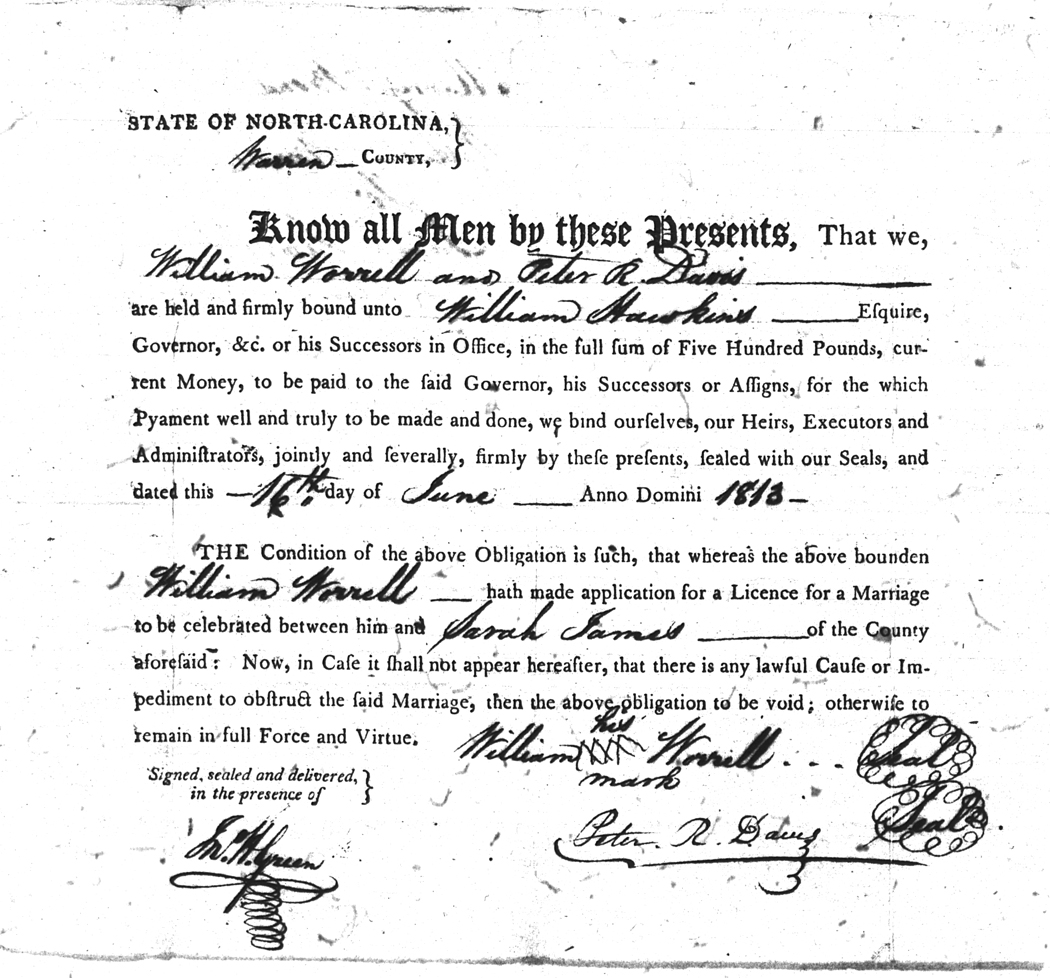 STATE OF NORTH-CAROLINA,
Warren — COUNTY,
Know all Men by these Presents, That we,
William Worrell and Peter R. Davis
are held and firmly bound unto William Hawkins Eſquire,
Governor, &c. or his Successors in Office, in the full ſum of Five Hundred Pounds, cur-
rent Money, to be paid to the ſaid Governor, his Successors or Aſſigns, for the which
Pyament well and truly to be made and done, we bind ourſelves, our Heirs, Executors and
Adminiſtrators, jointly and ſeverally, firmly by theſe preſents, ſealed with our Seals, and
dated this — 16th. day of June Anno Domini 1813 —
THE Condition of the above Obligation is ſuch, that whereas the above bounden
William Worrell — hath made application for a Licence for a Marriage
to be celebrated between him and Sarah James of the County
aforeſaid: Now, in Caſe it ſhall not appear hereafter, that there is any lawful Cauſe or Im-
pediment to obſtruct the ſaid Marriage, then the above obligation to be void; otherwiſe to
remain in full Force and Virtue.
his
William XXX Worrell . . . Seal
mark
Signed, sealed and delivered,
in the presence of
Peter. R. Davis Seal.
Jn. W. Green